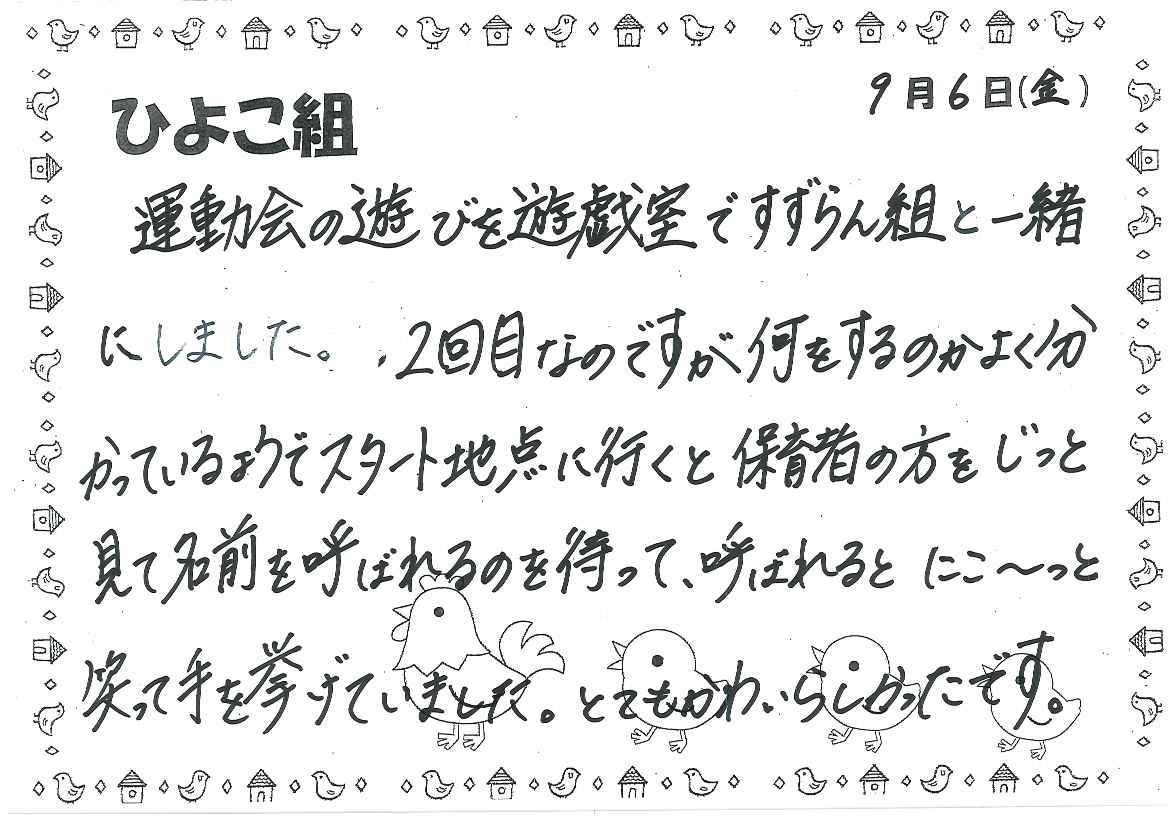 ひよこ組
9月6日(金)
運動会の遊びを遊戯室ですずらん組と一緒
にしました。2回目なのですが何をするのかよく分
かっているようでスタート地点に行くと保育者の方をじっと
見て名前を呼ばれるのを待って、呼ばれると にこ〜っと
笑って手を挙げていました。とてもかわいらしかったです。